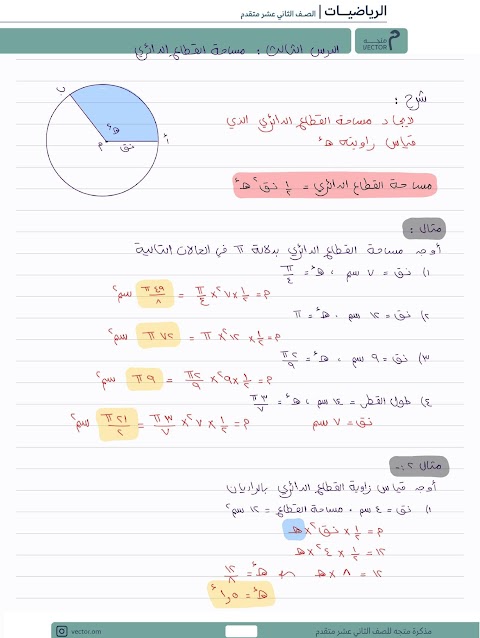 الرياضيــات | الصف الثاني عشر متقدم
متجه
VECTOR
الدرس الثالث : مساحة القطاع الدائري
شرح :
لإيجاد مساحة القطاع الدائري الذي
قياس زاويته هـ
مساحة القطاع الدائري = ١/٢ نق٢ هـ
ب
هـ
م
نق
أ
مثال :
أوجد مساحة القطاع الدائري بدلالة π في الحالات التالية
١) نق = ٧ سم ، هـ = π/٤
م = ١/٢ × ٧٢ × π/٤ = ٤٩π/٨ سم٢
٢) نق = ١٢ سم ، هـ = π
م = ١/٢ × ١٢٢ × π = ٧٢π سم٢
٣) نق = ٩ سم ، هـ = ٢π/٩
م = ١/٢ × ٩٢ × ٢π/٩ = ٩π سم٢
٤) طول القطر = ١٤ سم ، هـ = ٣π/٧
نق = ٧ سم
م = ١/٢ × ٧٢ × ٣π/٧ = ٢١π/٢ سم٢
مثال ٢ :-
أوجد قياس زاوية القطاع الدائري بالراديان
١) نق = ٤ سم ، مساحة القطاع = ١٢ سم٢
م = ١/٢ × نق٢ × هـ
١٢ = ١/٢ × ٤٢ × هـ
١٢ = ٨ × هـ ← هـ = ١٢/٨
هـ = ١,٥
vector.om
مذكرة متجه للصف الثاني عشر متقدم